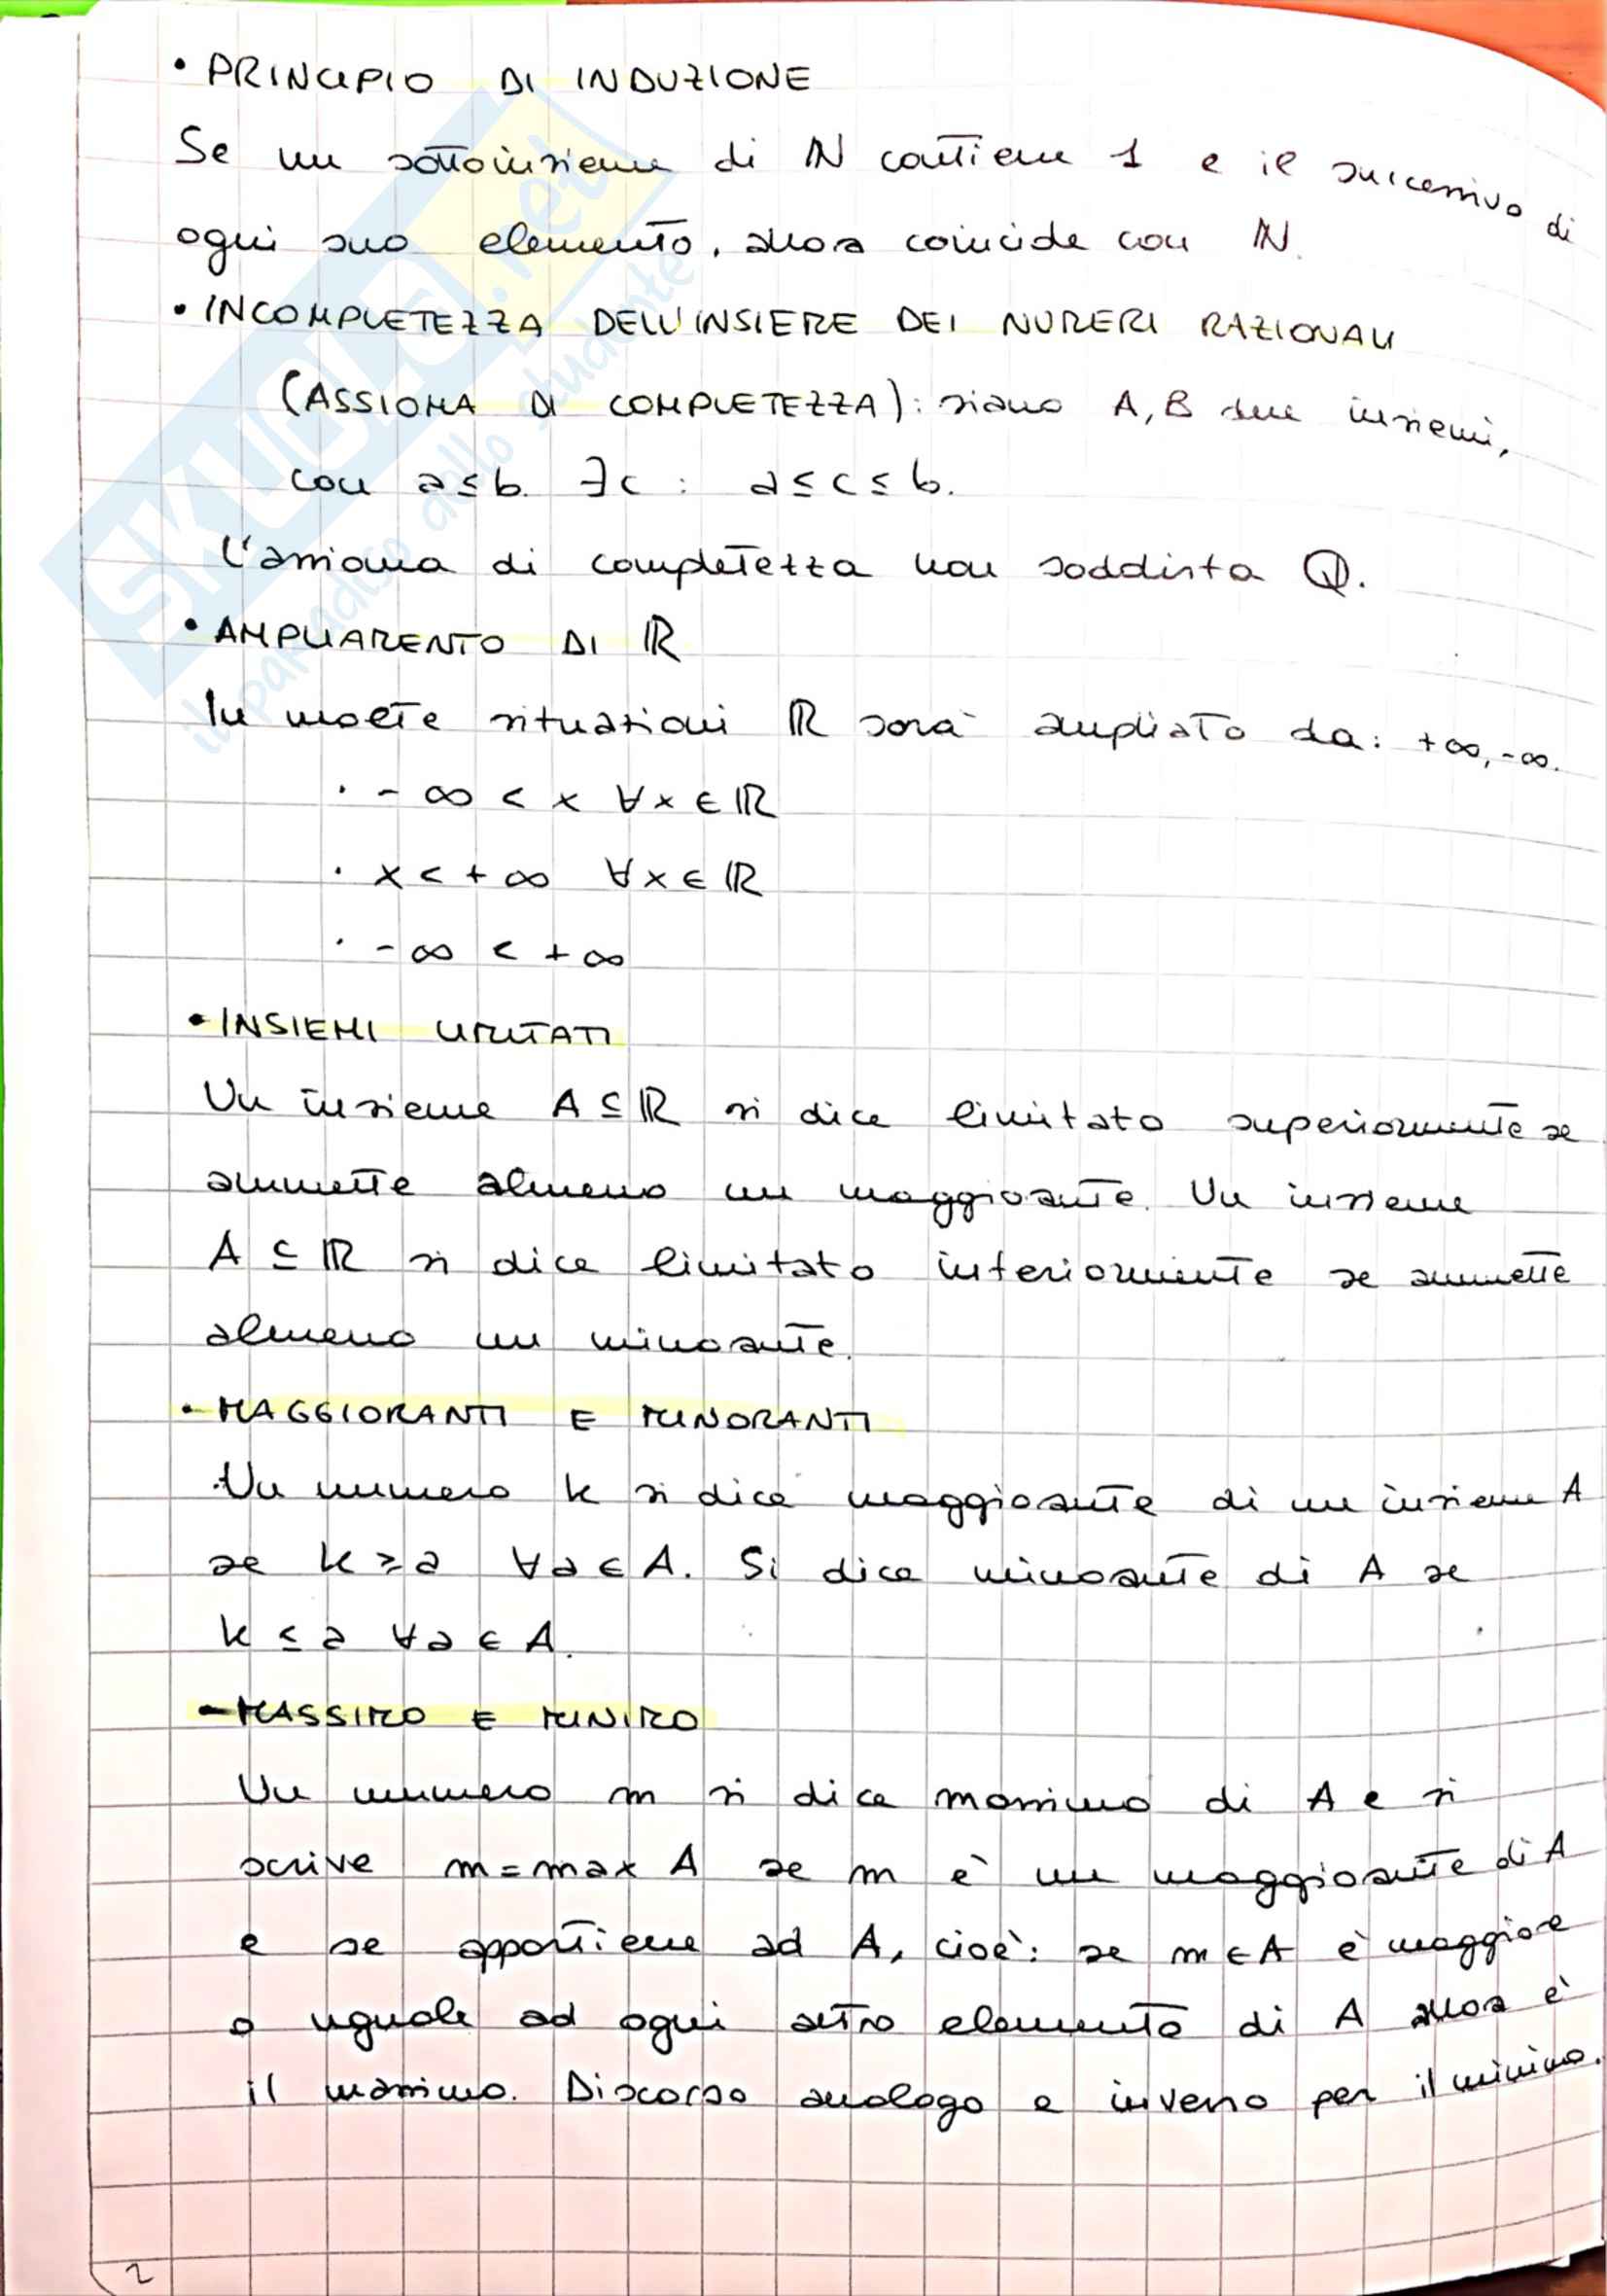 • PRINCIPIO DI INDUZIONE
Se un sottoinsieme di ℕ contiene 1 e il successivo di
ogni suo elemento, allora coincide con ℕ.
• INCOMPLETEZZA DELL'INSIEME DEI NUMERI RAZIONALI
(ASSIOMA DI COMPLETEZZA): siano A, B due insiemi,
con a ≤ b. ∃c : a ≤ c ≤ b.
L'assioma di completezza non soddisfa ℚ.
• AMPLIAMENTO DI ℝ
In molte situazioni ℝ sarà ampliato da: +∞, -∞.
· -∞ < x ∀x ∈ ℝ
· x < +∞ ∀x ∈ ℝ
· -∞ < +∞
• INSIEMI LIMITATI
Un insieme A ⊆ ℝ si dice limitato superiormente se
ammette almeno un maggiorante. Un insieme
A ⊆ ℝ si dice limitato inferiormente se ammette
almeno un minorante.
• MAGGIORANTI E MINORANTI
Un numero k si dice maggiorante di un insieme A
se k ≥ a ∀a ∈ A. Si dice minorante di A se
k ≤ a ∀a ∈ A.
- MASSIMO E MINIMO
Un numero m si dice massimo di A e si
scrive m = max A se m è un maggiorante di A
e se appartiene ad A, cioè: se m ∈ A è maggiore
o uguale ad ogni altro elemento di A allora è
il massimo. Discorso analogo e inverso per il minimo.
2
SKUOLA.net
il paradiso dello studente